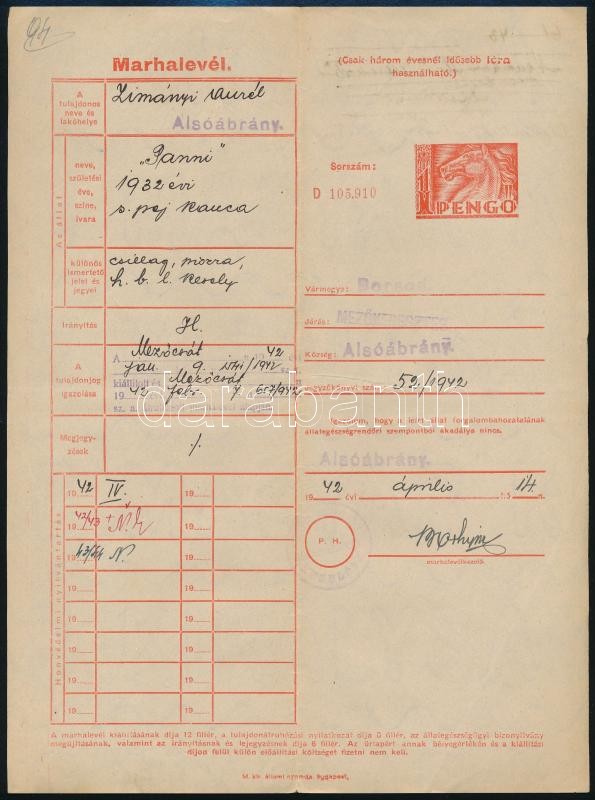 94
Marhalevél.
(Csak három évesnél idősebb lóra
használható.)
A
tulajdonos
neve és
lakóhelye
Zimányi Aurél
Alsóábrány.
Az állat
neve,
születési
éve,
színe,
ivara
„Panni”
1932 évi
s. pej kanca
különös
ismertető
jelei és
jegyei
csillag, mozza,
h. b. l. kesely
Irányítás
H.
A
tulajdonjog
igazolása
A Mezőcsát 1942
jan. 9. 1942 sz
kiállított Mezőcsát
1942 febr. 7. 657/942
sz. a.
Megjegy-
zések
Honvédelmi nyilvántartás
1942 IV. 19
42/43 19
43/44 N. 19
19 19
19 19
19 19
19 19
19 19
19 19
Sorszám:
D 105,910
1 PENGŐ
Vármegye: Borsod
Járás: MEZŐKERESZTES
Község: Alsóábrány.
jegyzőkönyvi sz. 52/1942
Igazolom, hogy a leírt állat forgalombahozatalának
állategészségrendőri szempontból akadálya nincs.
Alsóábrány.
1942 évi április hó 14. n.
P. H.
marhalevélkezelő.
A marhalevél kiállításának díja 12 fillér, a tulajdonátruházási nyilatkozat díja 6 fillér, az állategészségügyi bizonyítvány
megújításának, valamint az irányításnak és lejegyzésnek díja 6 fillér. Az űrlapért annak bélyegértékén és a kiállítási
díjon felül külön előállítási költséget fizetni nem kell.
M. kir. állami nyomda, Budapest.
darabanth.com